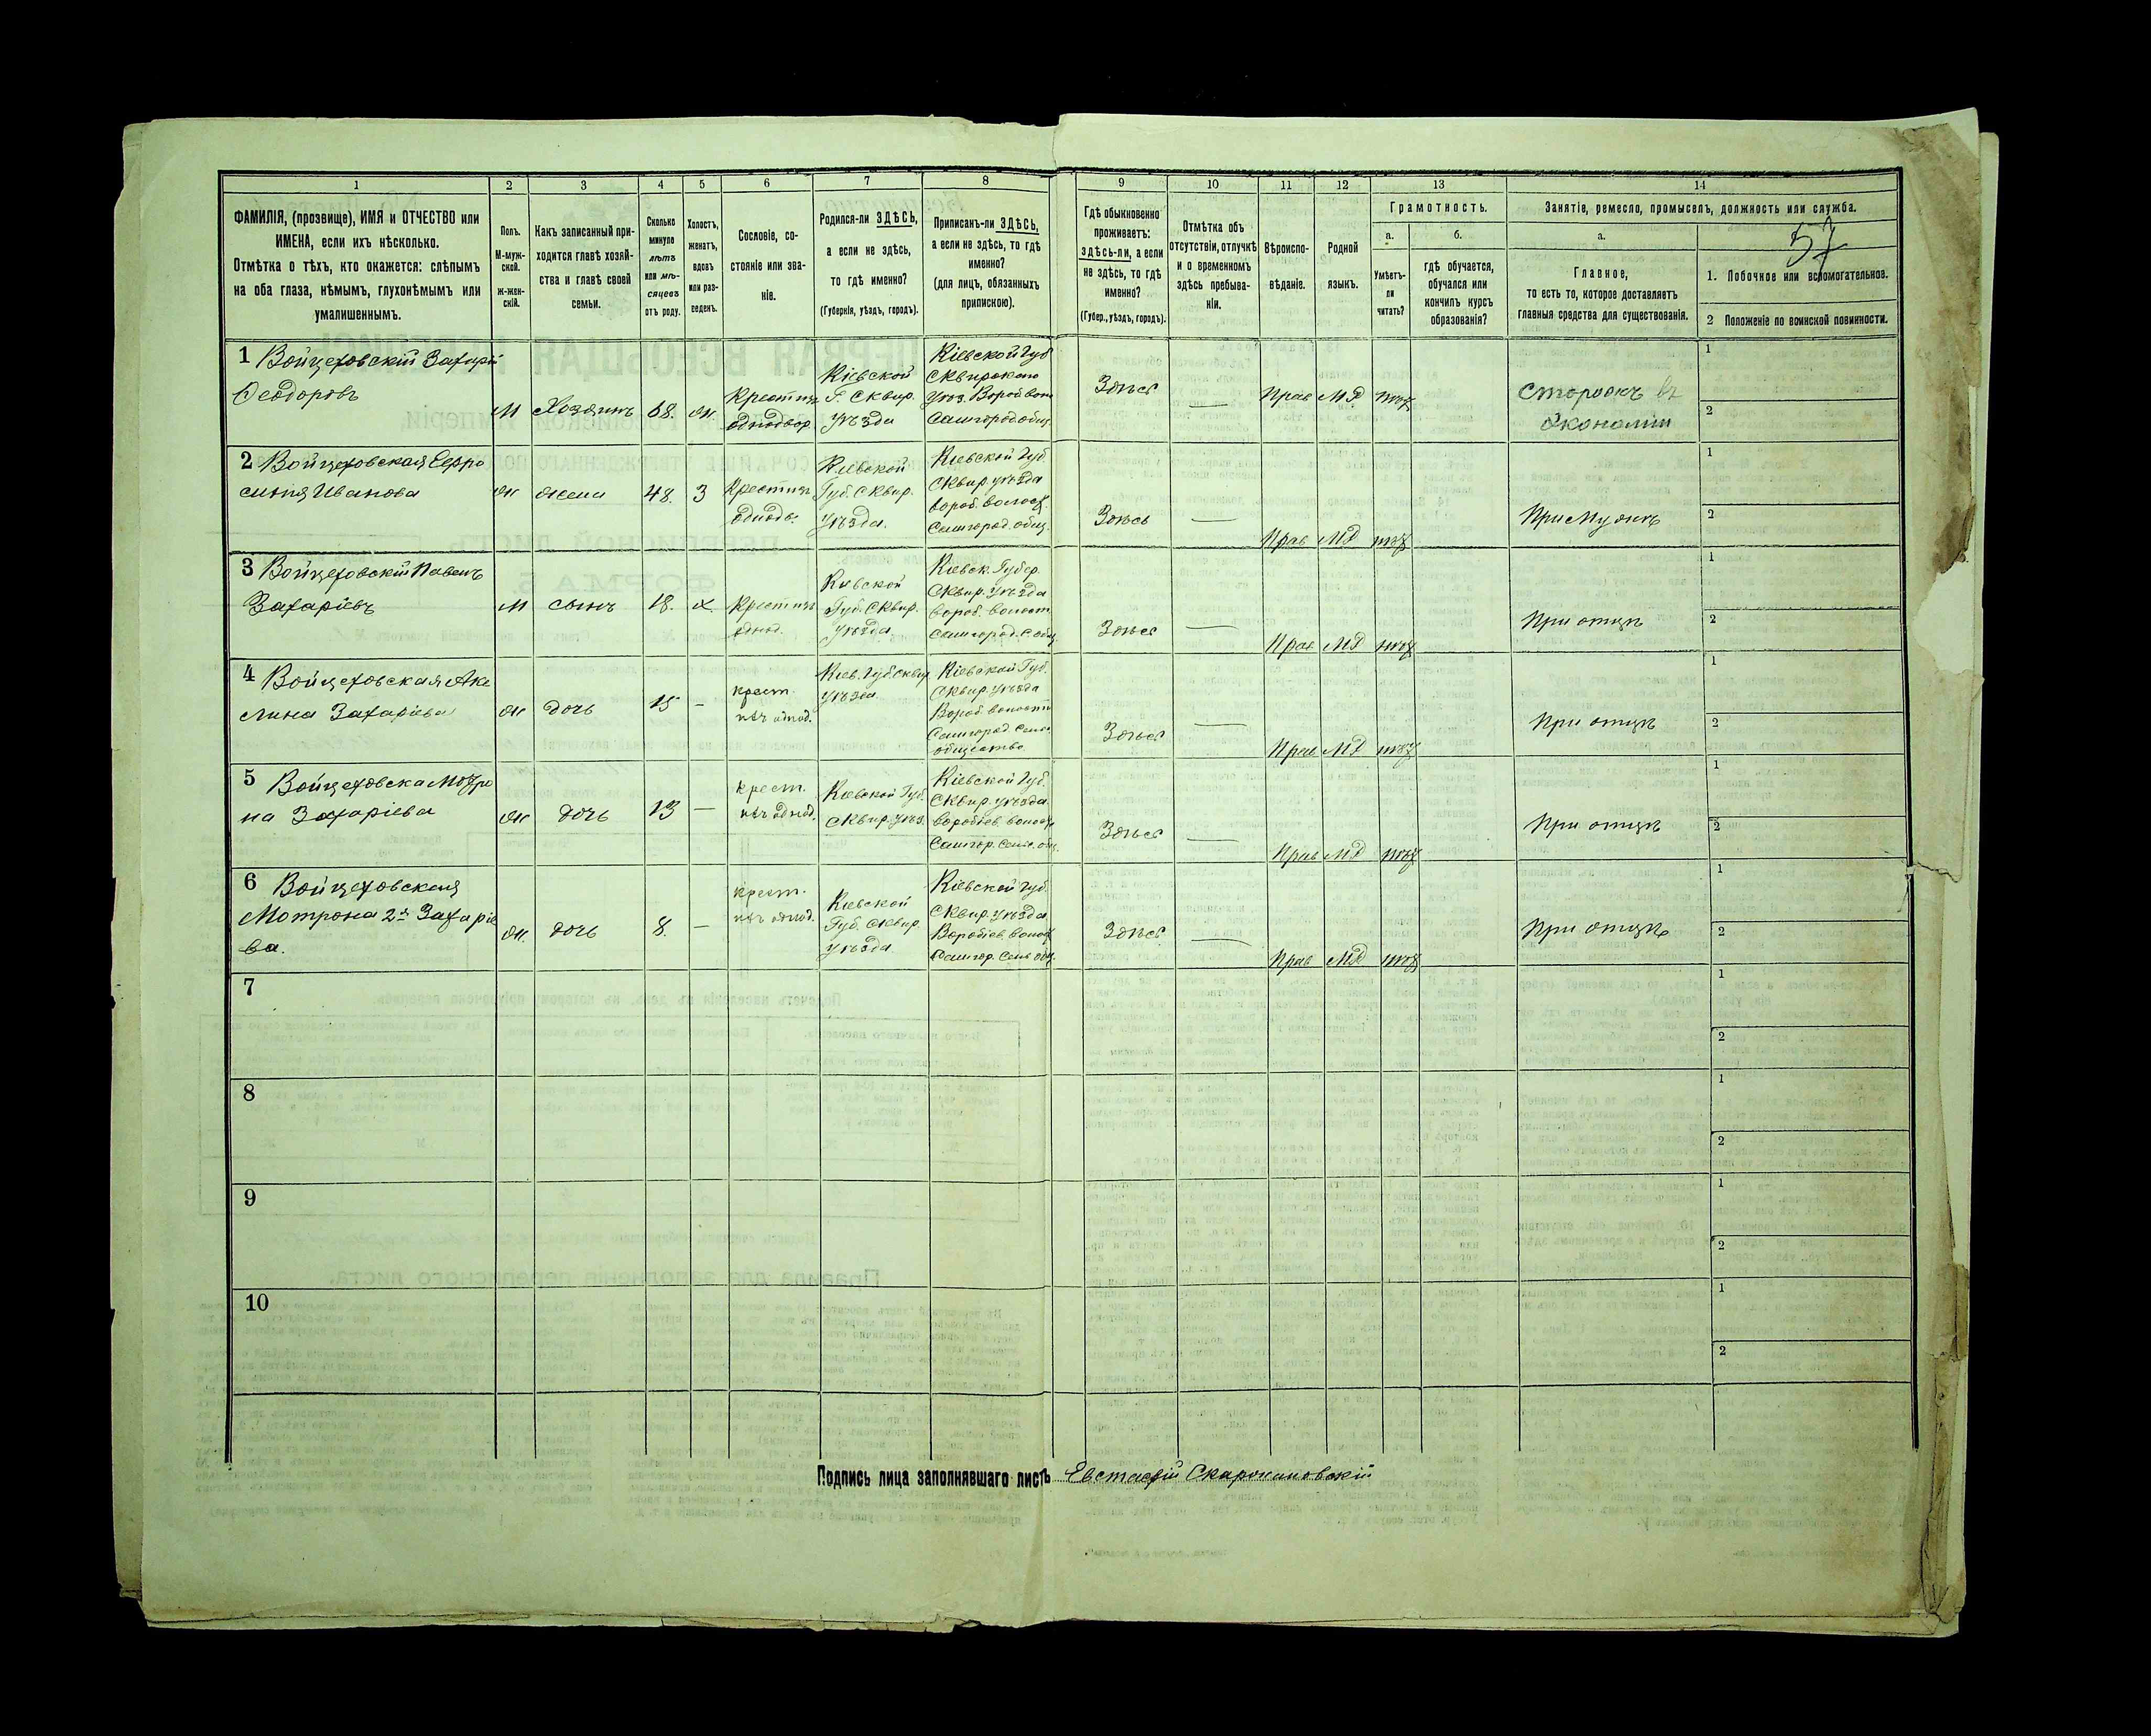 1 2 3 4 5 6 7 8 9 10 11 12 13 14
ФАМИЛІЯ, (прозвище), ИМЯ и ОТЧЕСТВО или
ИМЕНА, если ихъ нѣсколько.
Отмѣтка о тѣхъ, кто окажется: слѣпымъ
на оба глаза, нѣмымъ, глухонѣмымъ или
умалишеннымъ.
Полъ.
М-муж-
ской.
ж-жен-
скій.
Какъ записанный при-
ходится главѣ хозяй-
ства и главѣ своей
семьи.
Сколько
минуло
лѣтъ
или мѣ-
сяцевъ
отъ роду.
Холостъ,
женатъ,
вдовъ
или раз-
веденъ.
Сословіе, со-
стояніе или зва-
ніе.
Родился-ли ЗДѢСЬ,
а если не здѣсь,
то гдѣ именно?
(Губернія, уѣздъ, городъ).
Приписанъ-ли ЗДѢСЬ,
а если не здѣсь, то гдѣ
именно?
(для лицъ, обязанныхъ
припискою).
Гдѣ обыкновенно
проживаетъ:
здѣсь-ли, а если
не здѣсь, то гдѣ
именно?
(Губер., уѣздъ, городъ).
Отмѣтка объ
отсутствіи, отлучкѣ
и о временномъ
здѣсь пребыва-
ніи.
Вѣроиспо-
вѣданіе.
Родной
языкъ.
Грамотность.
а.
Умѣетъ-
ли
читать?
б.
гдѣ обучается,
обучался или
кончилъ курсъ
образованія?
Занятіе, ремесло, промыселъ, должность или служба.
57
а.
Главное,
то есть то, которое доставляетъ
главныя средства для существованія.
1. Побочное или вспомогательное.
2 Положеніе по воинской повинности.
1 Войцеховскій Захарій
Ѳеодоровъ
М Хозяинъ 68. ж.
Крестян
однодвор.
Кіевской
Г. Сквир.
уѣзда
Кіевской Губ
Сквирскаго
Здѣсь — Прав МР
Сторожъ въ
Экономіи
1
2
2 Войцеховская Евфро
синія Иванова
ж жена 48. З
Крестян
однодв.
Кіевской
Губ. Сквир.
уѣзда.
Кіевской Губ.
Сквир. уѣзда
Вороб. волост.
Сашгород. общ.
Здѣсь — Прав МР
При мужѣ
1
2
3 Войцеховскій Павелъ
Захаріевъ
М сынъ 18. х.
Крестян
однод.
Кіевской
Губ. Сквир.
уѣзда.
Кіевск. Губер.
Сквир. уѣзда
Вороб. волост.
Здѣсь — Прав МР
При отцѣ
1
2
4 Войцеховская Аке
лина Захаріева
ж дочь 15 —
крест.
Кіев. Губ Сквир
уѣзда
Кіевской Губ.
Сквир. уѣзда
Вороб. волости
Сашгород. Сель.
общество.
Здѣсь — Прав МР
При отцѣ
1
2
5 Войцеховска Мотро
на Захаріева
ж дочь 13 —
крест.
Кіевской Губ.
Сквир. уѣз.
Кіевской Губ.
Сквир. уѣзда.
Воробіев. волост
Сашгор. Сель. общ.
Здѣсь — Прав МР
При отцѣ
1
2
6 Войцеховская
Мотрона 2я Захаріе
ва.
ж. дочь 8. —
крест.
Кіевской
Губ. Сквир.
уѣзда
Кіевской Губ.
Сквир. уѣзда
Воробіев. волост
Сашгор. Сель общ.
Здѣсь — Прав МР
При отцѣ
1
2
7
1
2
8
1
2
9
1
2
10
1
2
Подпись лица заполнявшаго листъ